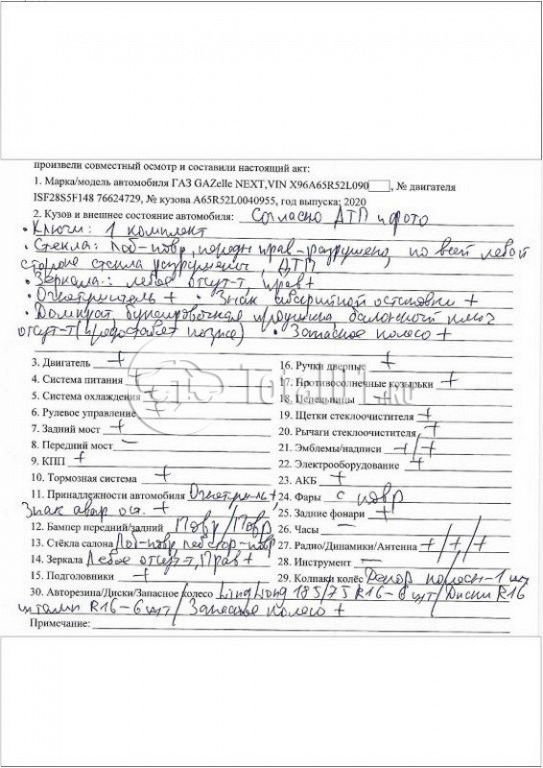 произвели совместный осмотр и составили настоящий акт:
1. Марка/модель автомобиля ГАЗ GAZelle NEXT,VIN X96A65R52L090 , № двигателя
ISF28S5F148 76624729, № кузова A65R52L0040955, год выпуска: 2020
2. Кузов и внешнее состояние автомобиля: Согласно ДТП и фото
• Ключи: 1 комплект
• Стекла: Лоб-повр, передн прав-разрушено, по всей левой
стороне стекла разрушены, ДТП
• Зеркала: левое отсут-т, прав+
• Огнетушитель + • Знак аварийной остановки +
• Домкрат, буксировочная проушина, балонный ключ
отсут-т (предоставят позже) • Запасное колесо +
3. Двигатель +
4. Система питания +
5. Система охлаждения +
6. Рулевое управление +
7. Задний мост +
8. Передний мост —
9. КПП +
10. Тормозная система +
11. Принадлежности автомобиля Огнетушитель+,
Знак авар ост. +
12. Бампер передний/задний Повр/Повр
13. Стёкла салона Лоб-повр лев стор-повр
14. Зеркала Левое отсут-т, Прав +
15. Подголовники +
16. Ручки дверные +
17. Противосолнечные козырьки +
18. Пепельницы +
19. Щетки стеклоочистителя +
20. Рычаги стеклоочистителя +
21. Эмблемы/надписи +/+
22. Электрооборудование +
23. АКБ +
24. Фары с повр
25. Задние фонари +
26. Часы —
27. Радио/Динамики/Антенна +/+/+
28. Инструмент —
29. Колпаки колёс Декор колесн-1 шт
30. Авторезина/Диски/Запасное колесо LingLong 185/75 R16-6 шт/Диски R16
штамп R16-6 шт/ Запасное колесо +
Примечание:
TOTAL01.RU